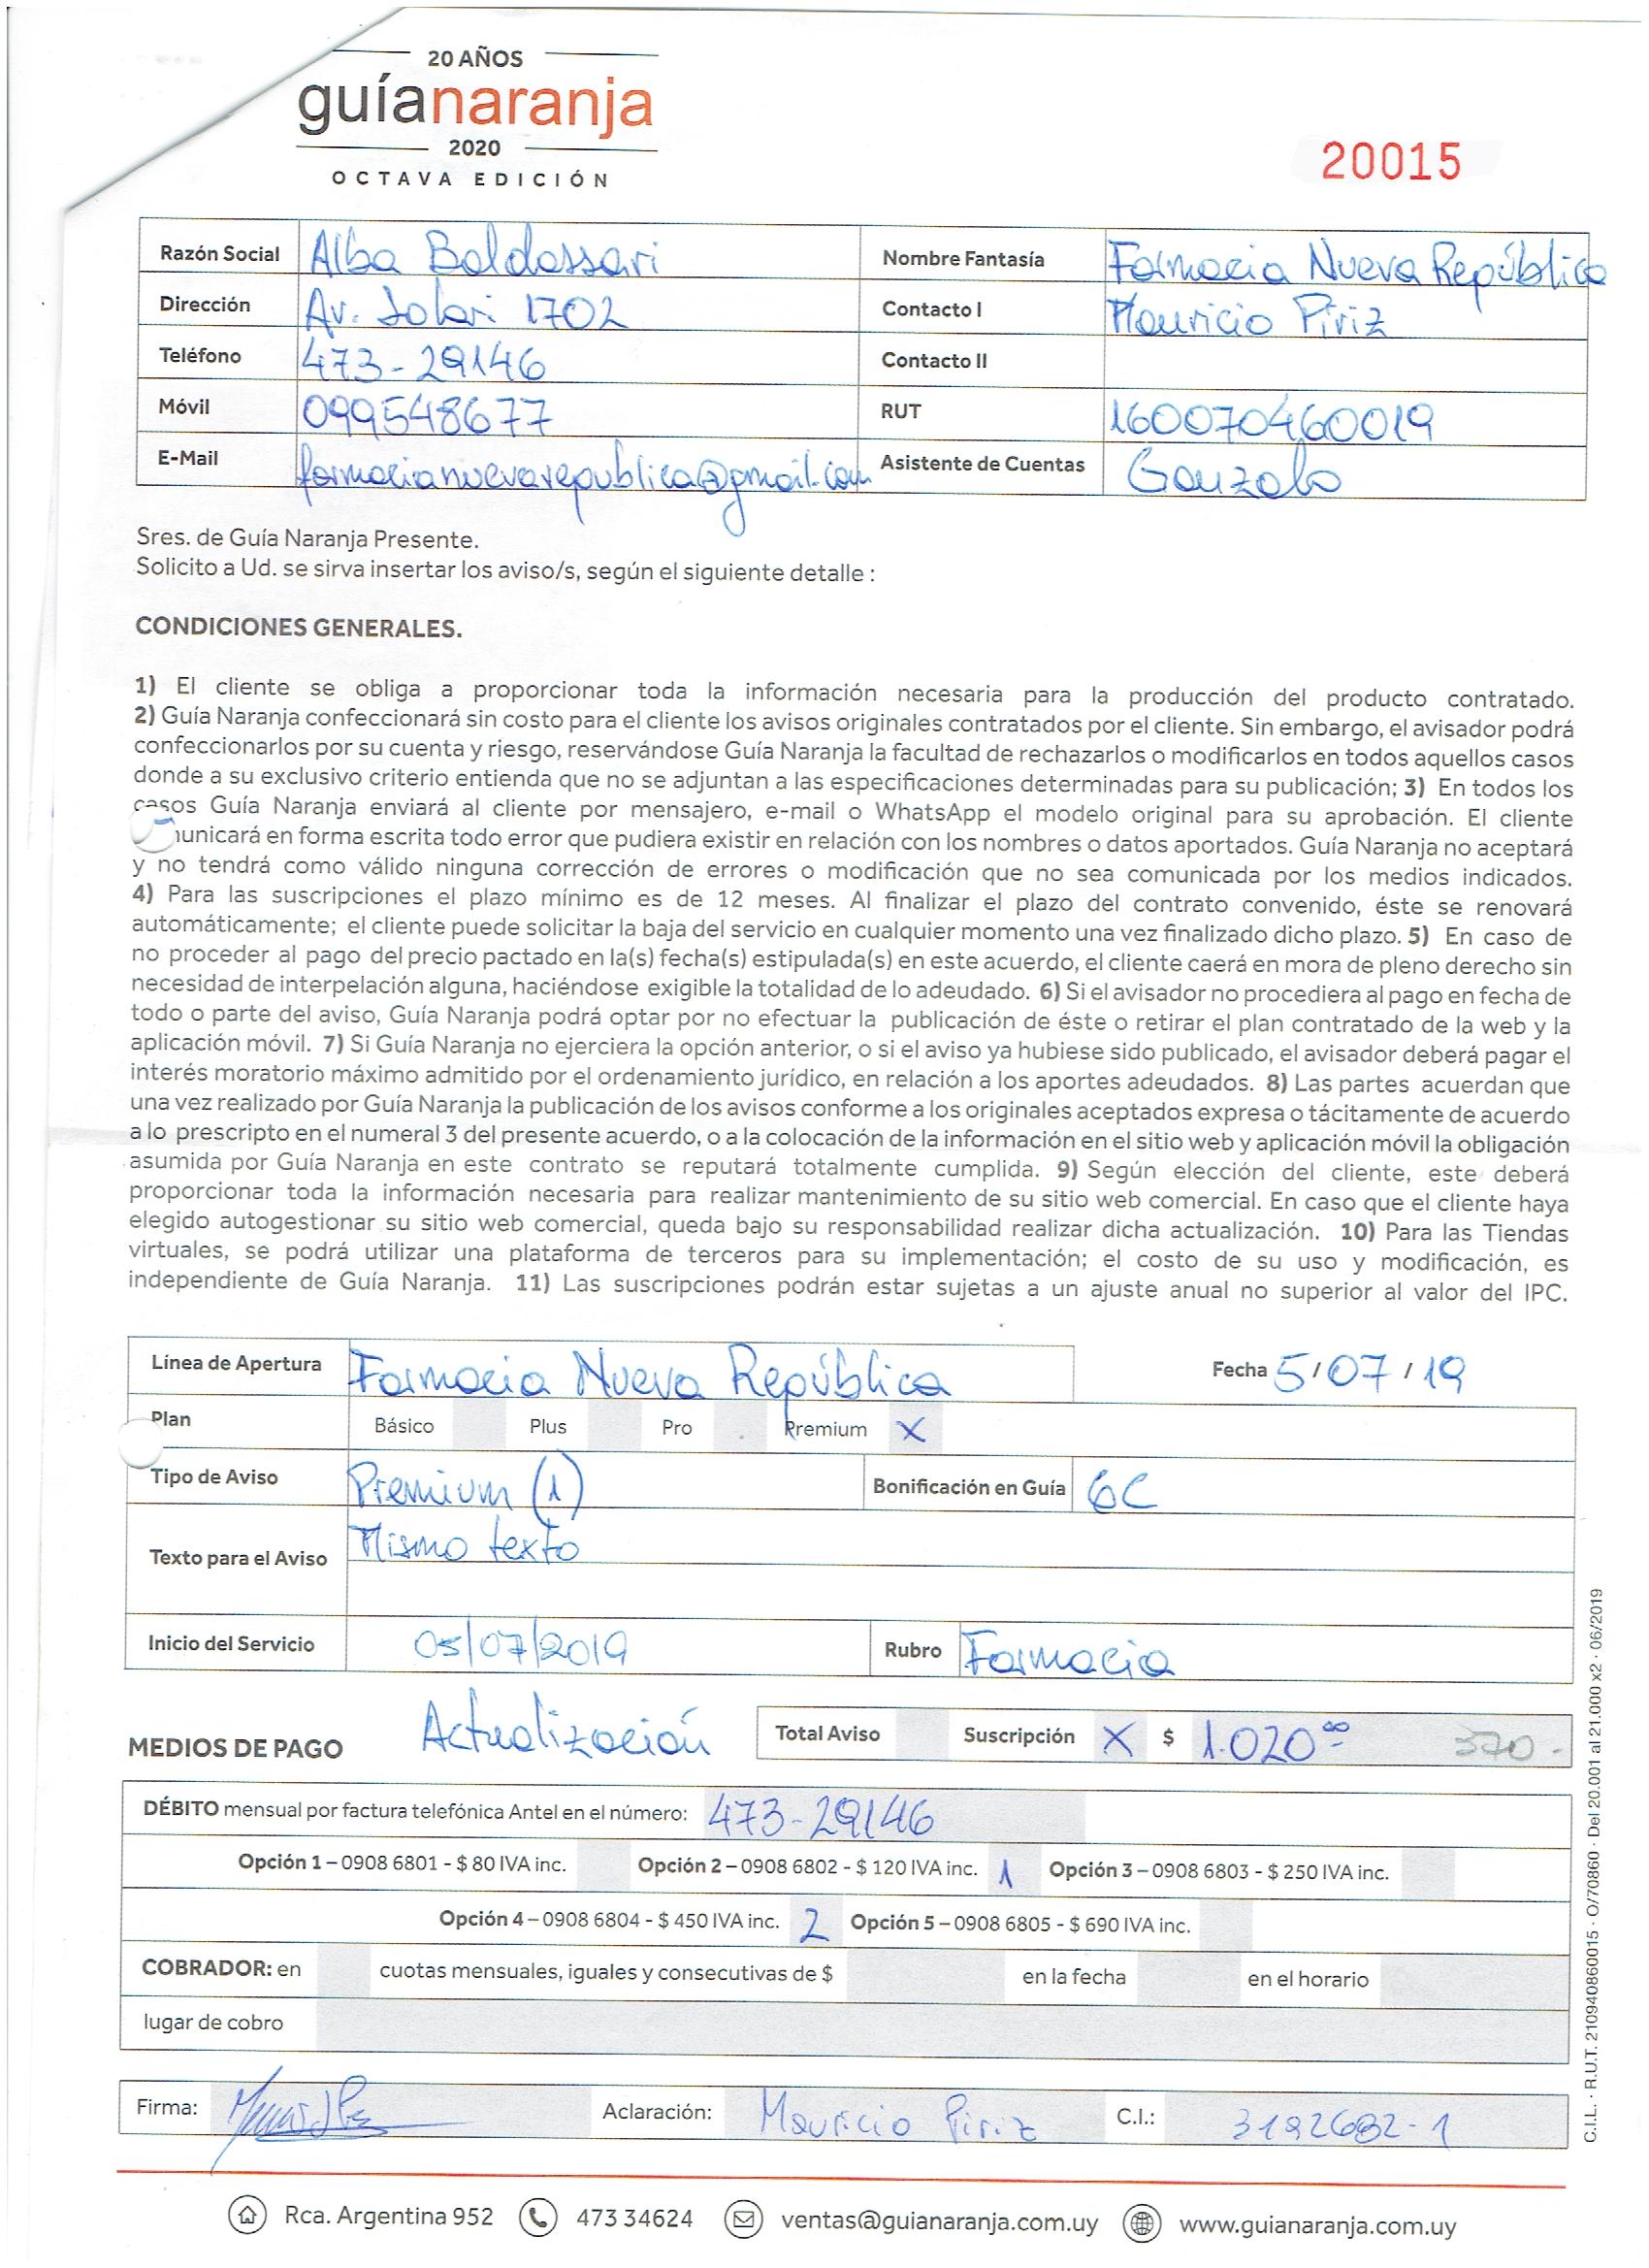 20 AÑOS
guíanaranja
2020
OCTAVA EDICIÓN
20015
Razón Social Alba Baldassari Nombre Fantasía Farmacia Nueva República
Dirección Av. Solari 1702 Contacto I Mauricio Piriz
Teléfono 473-29146 Contacto II
Móvil 099548677 RUT 160070460019
E-Mail farmacianuevarepublica@gmail.com Asistente de Cuentas Gonzalo
Sres. de Guía Naranja Presente.
Solicito a Ud. se sirva insertar los aviso/s, según el siguiente detalle :
CONDICIONES GENERALES.
1) El cliente se obliga a proporcionar toda la información necesaria para la producción del producto contratado.
2) Guía Naranja confeccionará sin costo para el cliente los avisos originales contratados por el cliente. Sin embargo, el avisador podrá
confeccionarlos por su cuenta y riesgo, reservándose Guía Naranja la facultad de rechazarlos o modificarlos en todos aquellos casos
donde a su exclusivo criterio entienda que no se adjuntan a las especificaciones determinadas para su publicación; 3) En todos los
casos Guía Naranja enviará al cliente por mensajero, e-mail o WhatsApp el modelo original para su aprobación. El cliente
unicará en forma escrita todo error que pudiera existir en relación con los nombres o datos aportados. Guía Naranja no aceptará
y no tendrá como válido ninguna corrección de errores o modificación que no sea comunicada por los medios indicados.
4) Para las suscripciones el plazo mínimo es de 12 meses. Al finalizar el plazo del contrato convenido, éste se renovará
automáticamente; el cliente puede solicitar la baja del servicio en cualquier momento una vez finalizado dicho plazo. 5) En caso de
no proceder al pago del precio pactado en la(s) fecha(s) estipulada(s) en este acuerdo, el cliente caerá en mora de pleno derecho sin
necesidad de interpelación alguna, haciéndose exigible la totalidad de lo adeudado. 6) Si el avisador no procediera al pago en fecha de
todo o parte del aviso, Guía Naranja podrá optar por no efectuar la publicación de éste o retirar el plan contratado de la web y la
aplicación móvil. 7) Si Guía Naranja no ejerciera la opción anterior, o si el aviso ya hubiese sido publicado, el avisador deberá pagar el
interés moratorio máximo admitido por el ordenamiento jurídico, en relación a los aportes adeudados. 8) Las partes acuerdan que
una vez realizado por Guía Naranja la publicación de los avisos conforme a los originales aceptados expresa o tácitamente de acuerdo
a lo prescripto en el numeral 3 del presente acuerdo, o a la colocación de la información en el sitio web y aplicación móvil la obligación
asumida por Guía Naranja en este contrato se reputará totalmente cumplida. 9) Según elección del cliente, este deberá
proporcionar toda la información necesaria para realizar mantenimiento de su sitio web comercial. En caso que el cliente haya
elegido autogestionar su sitio web comercial, queda bajo su responsabilidad realizar dicha actualización. 10) Para las Tiendas
virtuales, se podrá utilizar una plataforma de terceros para su implementación; el costo de su uso y modificación, es
independiente de Guía Naranja. 11) Las suscripciones podrán estar sujetas a un ajuste anual no superior al valor del IPC.
Línea de Apertura Farmacia Nueva República Fecha 5/07/19
Plan Básico Plus Pro Premium X
Tipo de Aviso Premium (1) Bonificación en Guía 6C
Texto para el Aviso Mismo texto
Inicio del Servicio 05/07/2019 Rubro Farmacia
MEDIOS DE PAGO Actualización Total Aviso Suscripción X $ 1.020°° 370-
DÉBITO mensual por factura telefónica Antel en el número: 473-29146
Opción 1 – 0908 6801 - $ 80 IVA inc. Opción 2 – 0908 6802 - $ 120 IVA inc. 1 Opción 3 – 0908 6803 - $ 250 IVA inc.
Opción 4 – 0908 6804 - $ 450 IVA inc. 2 Opción 5 – 0908 6805 - $ 690 IVA inc.
COBRADOR: en cuotas mensuales, iguales y consecutivas de $ en la fecha en el horario
lugar de cobro
Firma: Aclaración: Mauricio Piriz C.I.: 3192682-1
Rca. Argentina 952 473 34624 ventas@guianaranja.com.uy www.guianaranja.com.uy
C.I.L. · R.U.T. 210940860015 · O/70860 · Del 20.001 al 21.000 x2 · 06/2019